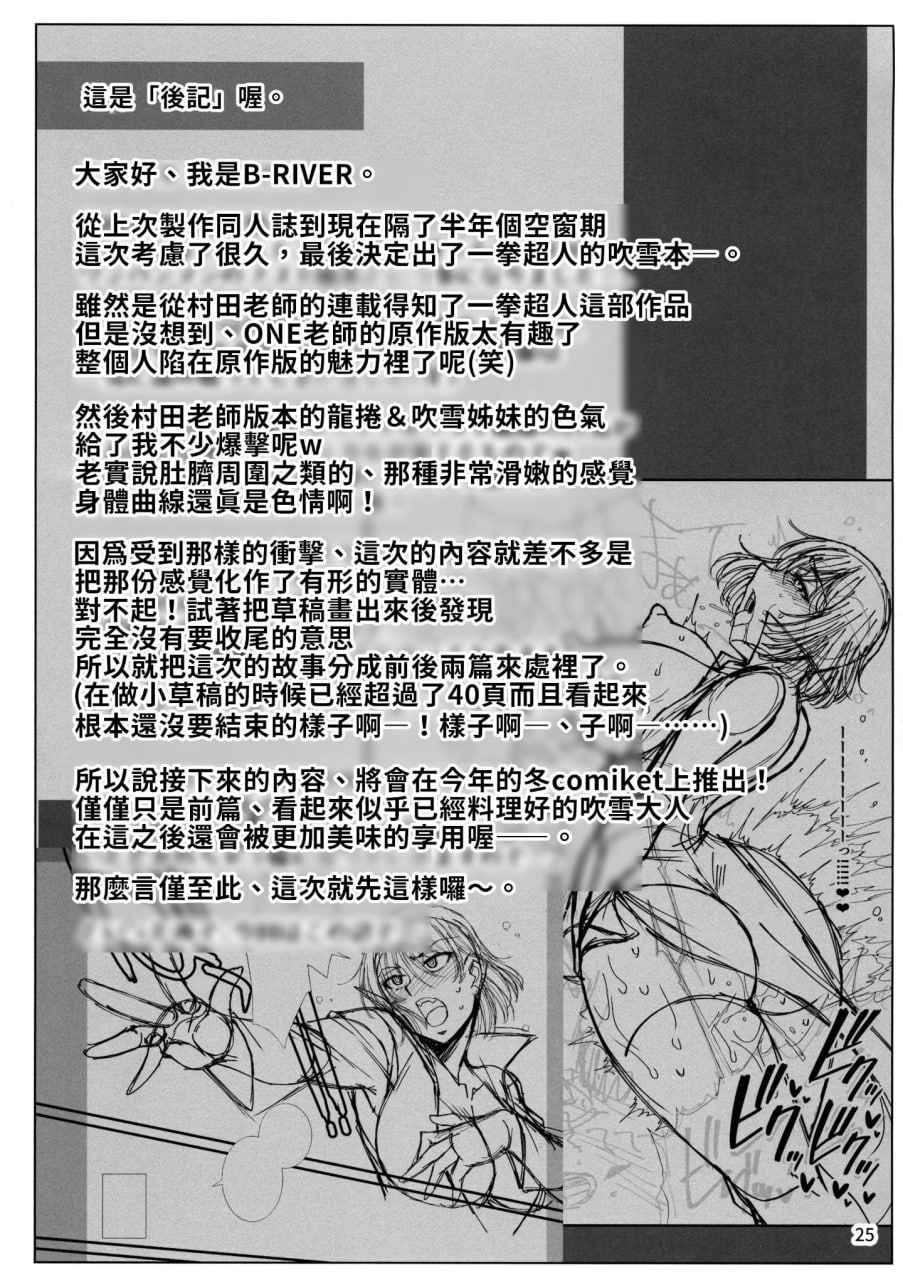 這是「後記」喔。
大家好、我是B-RIVER。
從上次製作同人誌到現在隔了半年個空窗期
這次考慮了很久，最後決定出了一拳超人的吹雪本—。
雖然是從村田老師的連載得知了一拳超人這部作品
但是沒想到、ONE老師的原作版太有趣了
整個人陷在原作版的魅力裡了呢(笑)
然後村田老師版本的龍捲＆吹雪姊妹的色氣
給了我不少爆擊呢w
老實說肚臍周圍之類的、那種非常滑嫩的感覺
身體曲線還眞是色情啊！
因爲受到那樣的衝擊、這次的內容就差不多是
把那份感覺化作了有形的實體⋯
對不起！試著把草稿畫出來後發現
完全沒有要收尾的意思
所以就把這次的故事分成前後兩篇來處裡了。
(在做小草稿的時候已經超過了40頁而且看起來
根本還沒要結束的樣子啊—！樣子啊—、子啊—⋯⋯⋯)
所以說接下來的內容、將會在今年的冬comiket上推出！
僅僅只是前篇、看起來似乎已經料理好的吹雪大人
在這之後還會被更加美味的享用喔——。
那麼言僅至此、這次就先這樣囉～。
っ!!!!❤❤
ビクッ
ビクッ
ビクッ
25